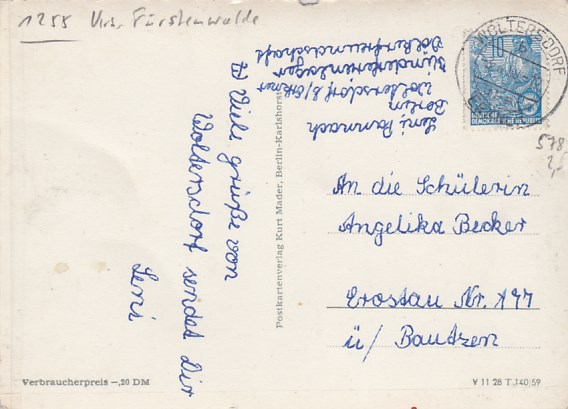 1255 Krs. Fürstenwalde
WOLTERSDORF
10
DEUTSCHE
DEMOKRATISCHE REPUBLIK
578
2,-
Leni Pannach
Berlin
Woltersdorf b/Erkner
Kinderferienlager
Völkerfreundschaft
Viele grüße von
Woltersdorf sendet Dir
Leni
Postkartenverlag Kurt Mader, Berlin-Karlshorst
An die Schülerin
Angelika Becker
Crostau Nr. 177
ü/ Bautzen
Verbraucherpreis -,20 DM
V 11 28 T 140/59